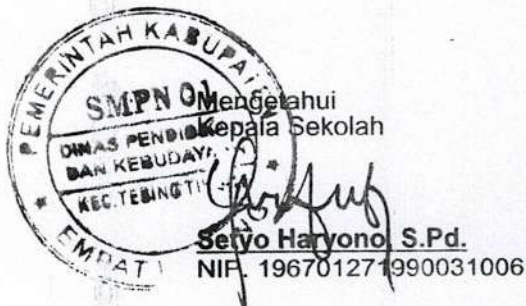 PEMERINTAH KABUPATEN
SMPN 01
DINAS PENDIDIKAN
DAN KEBUDAYA
KEC. TEBING TI
EMPAT
Mengetahui
Kepala Sekolah
Setyo Haryono, S.Pd.
NIP. 196701271990031006